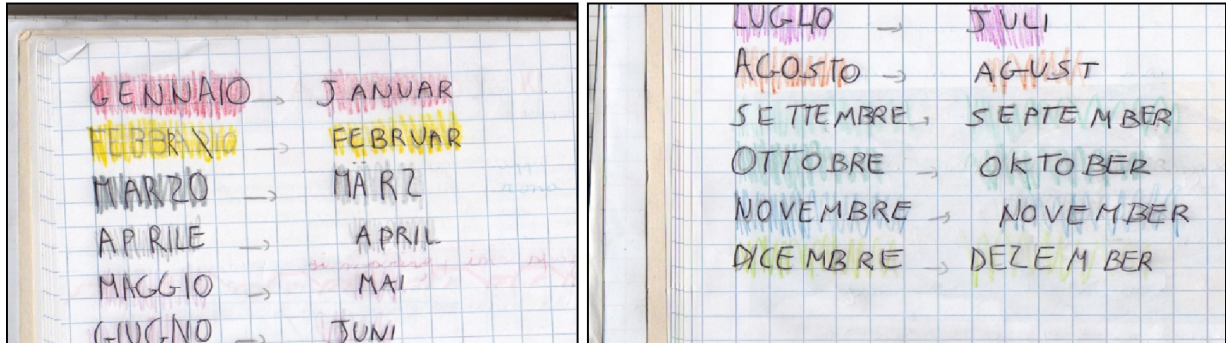 GENNAIO → JANUAR
FEBBRAIO → FEBRUAR
MARZO → MÄRZ
APRILE → APRIL
MAGGIO → MAI
GIUGNO → JUNI
LUGLIO → JULI
AGOSTO → AGUST
SETTEMBRE → SEPTEMBER
OTTOBRE → OKTOBER
NOVEMBRE → NOVEMBER
DICEMBRE → DEZEMBER